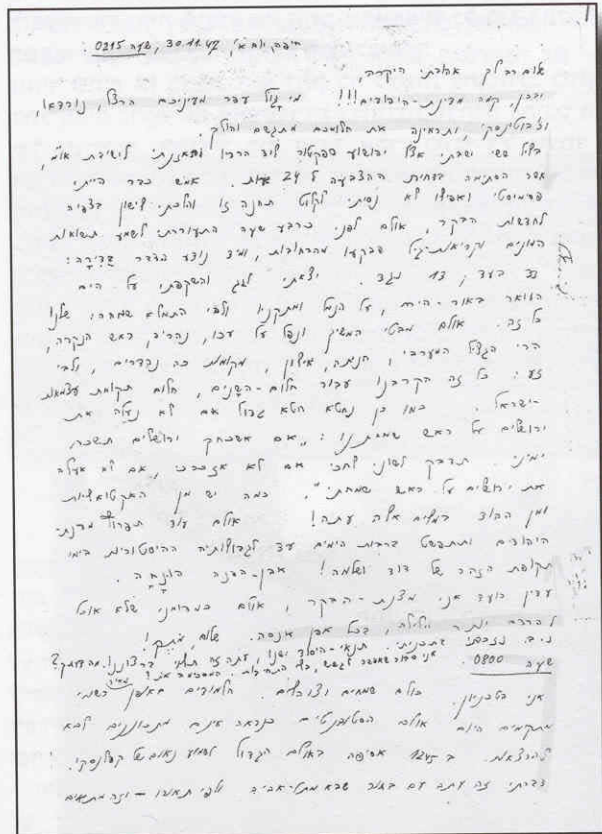 חיפה, יום א', 30.11.47, שעה 0215
יקרה,
קמה מדינת-היהודים!!! מי גול עפר מעיניכם הרצל, נורדאו,
וז'בוטינסקי, ותראינה את חלומכם מתגשם והולך.
בליל ששי ישבתי אצל יהושע ליד הרדיו והאזנתי לישיבת או"ם,
אשר הסתימה בדחית ההצבעה ל 24 שעות. אמש כבר הייתי
פסימיסטי ואפילו לא נסיתי לקלוט תחנה זו והלכתי לישון בצפיה
לחדשות הבקר, אולם לפני כרבע שעה התעוררתי לשמע תשואות
המונים וקריאות-גיל שבקעו מהרחובות, ומיד נודע הדבר
33 בעד, 13 נגד. יצאתי לגג והשקפתי על הים
המואר באור-הירח, על הנמל ומתקניו ולבי התמלא שמחה: שלנו
כל זה. אולם מבטי המשיך ונפל על עכו, נהריה, ראש הנקרה,
הרי הגליל המערבי, חניתה, אילון, מקומות כה נהדרים, ולבי
זע: כל זה הקרבנו עבור חלום-השנים, חלום תקומת עצמאות
-ישראל. כמו כן נחטא חטא גדול אם לא נעלה את
ירושלים על ראש שמחתנו: "אם אשכחך ירושלים תשכח
ימיני. תדבק לשוני לחכי אם לא אזכרכי, אם לא אעלה
את ירושלים על ראש שמחתי". כמה יש מן האקטואליות
ומן ההוד במלים אלה עתה! אולם עוד תפרוץ מדינת
היהודים ותתפשט ברבות הימים עד לגבולותיה ההיסטוריים בימי
תקופת הזהר של דוד ושלמה! אבן-הפנה הונחה.
עדין רועד אני מצנת-הבקר, אולם כמדומני שלא אוכל
להרדם יותר הלילה, בכל אופן אנסה. שלום,
נ.ב. תנאי-היסוד ישנו, עתה זה תלוי ברצוננו.
שעה 0800.
אני בטכניון. כולם שמחים וצוהלים. הלמודים באופן רשמי
מתקימים היום אולם הסטודנטים כנראה אינם מתכוננים לבוא
להרצאות. ב 1245 אסיפה באולם הגדול לשמוע נאום של קפלנסקי.
דברתי זה עתה עם בחור שבא מתל-אביב ולפי תאורו – וזה מתאים